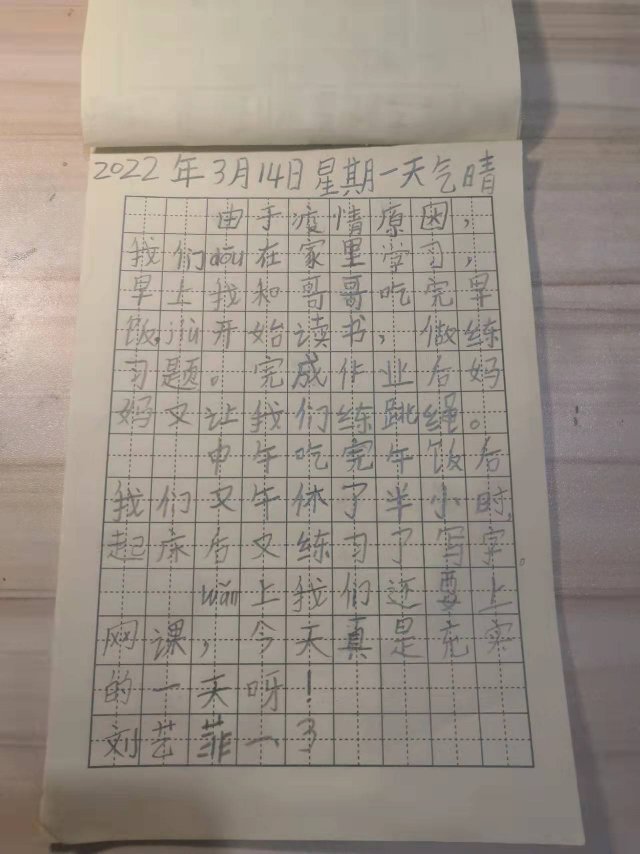 2022年3月14日星期一天气晴
由于疫情原因，
我们dōu在家里学习，
早上我和哥哥吃完早
饭,jiù开始读书，做练
习题。完成作业后妈
妈又让我们练跳绳。
中午吃完午饭后
我们又午休了半小时,
起床后又练习了写字。
wǎn上我们还要上
网课，今天真是充实
的一天呀！
刘艺菲一3